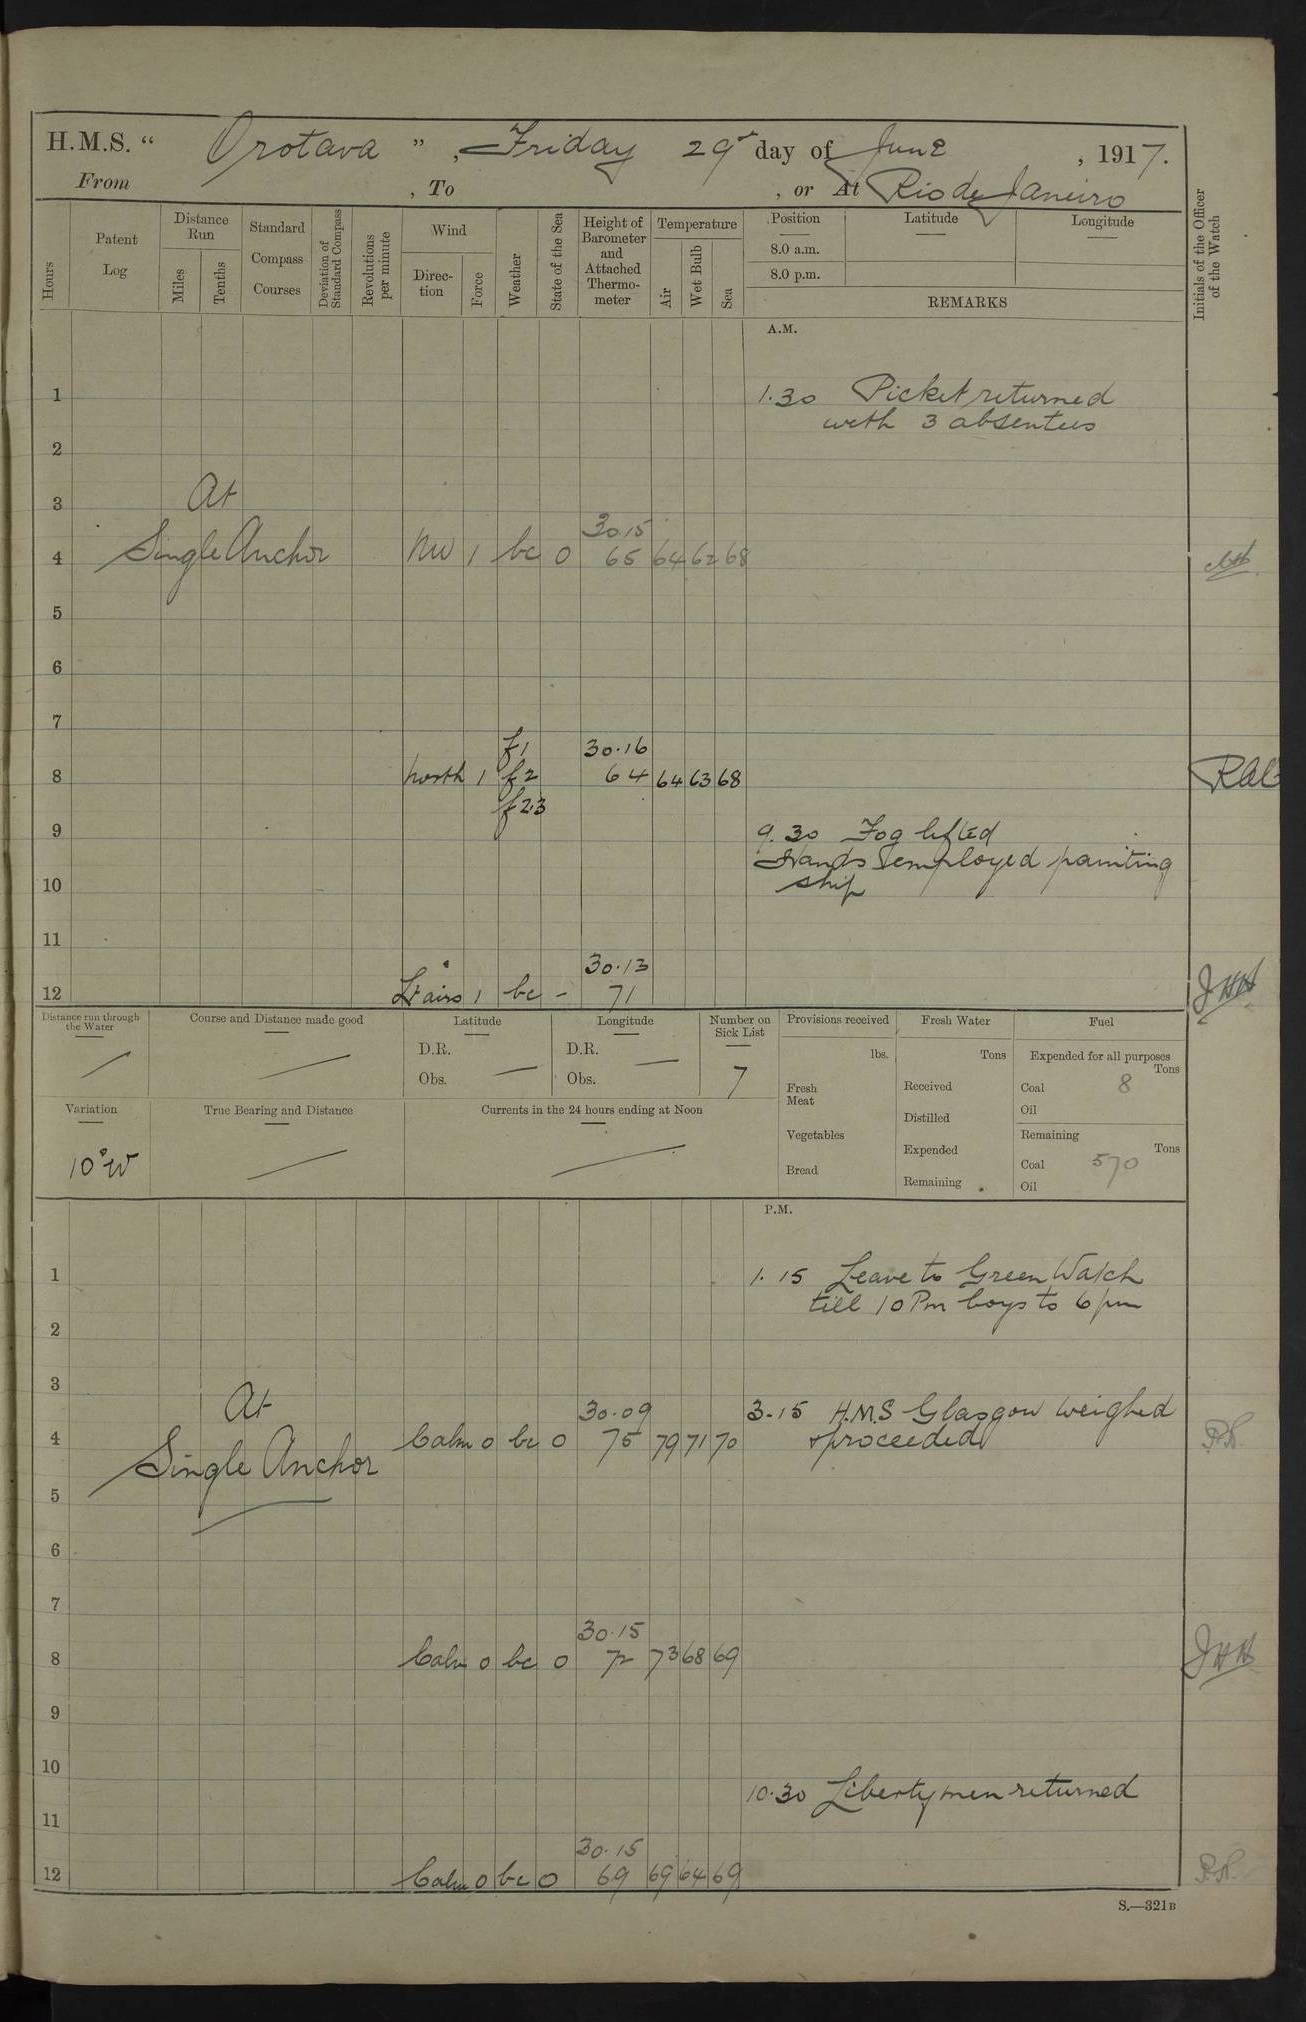 H.M.S. " Orotava ", Friday 29th day of June, 1917.
From , To , or At Rio de Janeiro
Hours
Patent Log
Distance Run
Miles
Tenths
Standard Compass Courses
Deviation of Standard Compass
Revolutions per minute
Wind
Direction
Force
Weather
State of the Sea
Height of Barometer and Attached Thermometer
Temperature
Air
Wet Bulb
Sea
Position
8.0 a.m.
8.0 p.m.
Latitude
Longitude
REMARKS
Initials of the Officer of the Watch
A.M.
1 1.30 Picket returned
with 3 absentees
2
3 At
30.15
4 Single Anchor NW 1 bc 0 65 64 62 68
5
6
7
f1 30.16
8 North 1 f2 64 64 63 68
f2.3
9 9.30 Fog lifted
Hands employed painting
10 ship
11
30.13
12 Lt airs 1 bc - 71 JHH
Distance run through the Water
Course and Distance made good
Latitude
D.R.
Obs.
Longitude
D.R.
Obs.
Number on Sick List
7
Provisions received
lbs.
Fresh Meat
Vegetables
Bread
Fresh Water
Tons
Received
Distilled
Expended
Remaining
Fuel
Expended for all purposes
Tons
Coal 8
Oil
Remaining
Tons
Coal 570
Oil
Variation
10°W
True Bearing and Distance
Currents in the 24 hours ending at Noon
P.M.
1 1.15 Leave to Green Watch
till 10 Pm boys to 6 pm
2
3 At 30.09 3-15 H.M.S Glasgow weighed
4 Calm 0 bc 0 75 79 71 70 & proceeded
Single Anchor
5
6
7
30.15
8 Calm 0 bc 0 72 73 68 69 JHH
9
10 10.30 Libertymen returned
11
30.15
12 Calm 0 bc 0 69 69 64 69
S.—321B